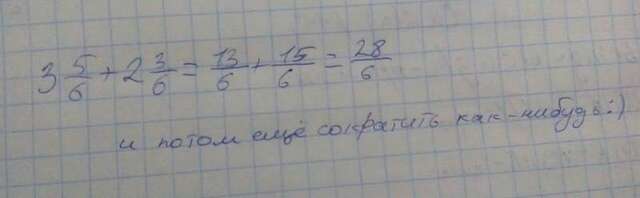 3 5/6 + 2 3/6 = 13/6 + 15/6 = 28/6
и потом ещё сократить как-нибудь:)